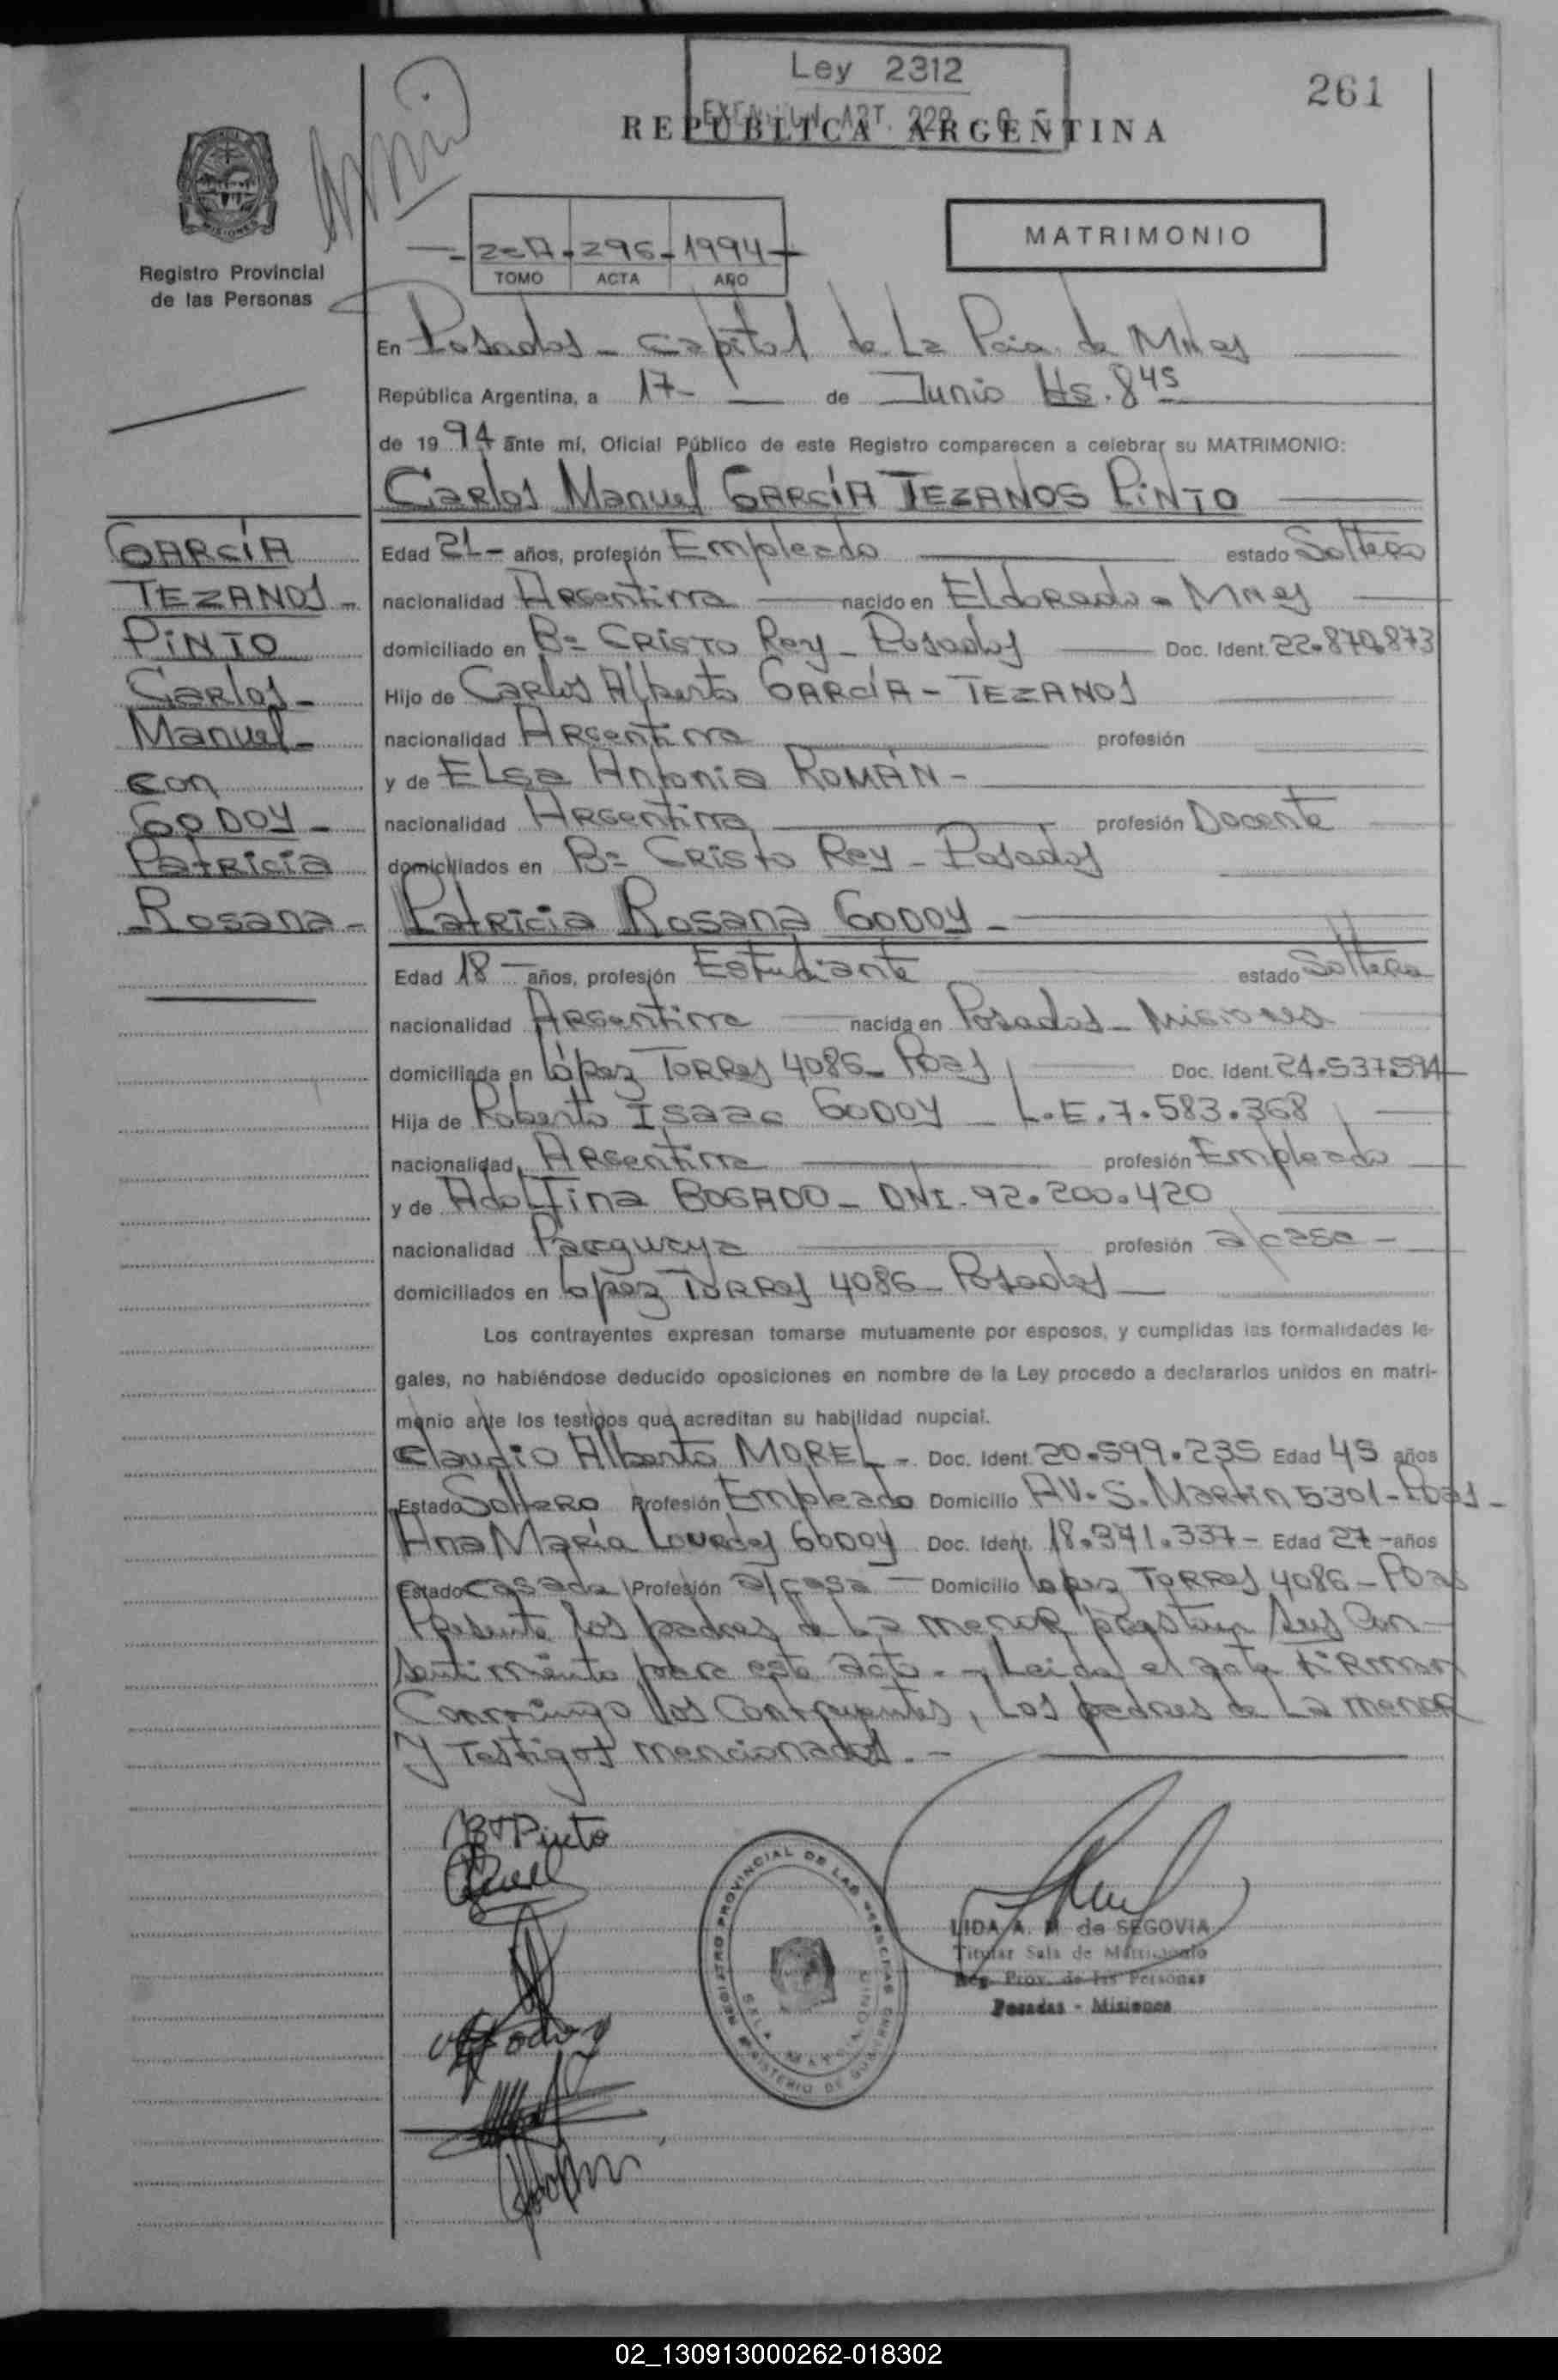 Ley 2312
261
REPUBLICA ARGENTINA
MATRIMONIO
2-A - 296 - 1994
TOMO ACTA AÑO
Registro Provincial
de las Personas
En Posadas - Capital de La Pcia. de Mnes
República Argentina, a 17 - de Junio Hs. 8 45
de 19 94 ante mí, Oficial Público de este Registro comparecen a celebrar su MATRIMONIO:
Carlos Manuel GARCÍA TEZANOS PINTO
GARCÍA
TEZANOS -
PINTO
Carlos -
Manuel -
con
GODOY -
Patricia
- Rosana -
Edad 21 - años, profesión Empleado estado Soltero
nacionalidad Argentina nacido en Eldorado - Mnes
domiciliado en Bº Cristo Rey - Posadas Doc. Ident. 22.870.873
Hijo de Carlos Alberto GARCÍA - TEZANOS
nacionalidad Argentina profesión
y de Elsa Antonia ROMÁN -
nacionalidad Argentina profesión Docente
domiciliados en Bº Cristo Rey - Posadas
Patricia Rosana GODOY -
Edad 18 - años, profesión Estudiante estado Soltera
nacionalidad Argentina nacida en Posadas - Misiones
domiciliada en López Torres 4086 - Pdas Doc. Ident. 24.537.594
Hija de Roberto Isaac GODOY - L.E. 7.583.368
nacionalidad Argentina profesión Empleado
y de Adolfina BOGADO - DNI - 92.200.420
nacionalidad Paraguaya profesión a/casa -
domiciliados en Lopez Torres 4086 - Posadas
Los contrayentes expresan tomarse mutuamente por esposos, y cumplidas las formalidades le-
gales, no habiéndose deducido oposiciones en nombre de la Ley procedo a declararlos unidos en matri-
monio ante los testigos que acreditan su habilidad nupcial.
Claudio Alberto MOREL - Doc. Ident. 20.599.235 Edad 45 años
Estado Soltero Profesión Empleado Domicilio AV. S. Martin 5301 - Pdas -
Ana María Lourdes GODOY Doc. Ident. 18.371.337 - Edad 27 - años
Estado casada Profesión a/casa - Domicilio Lopez Torres 4086 - Pdas
Presente los padres de La menor prestan sus Con-
sentimiento para este acto. - Leida el acta firman
Conmigo los Contrayentes, Los padres de La menor
Y Testigos mencionados. -
Pinto
REGISTRO PROVINCIAL DE LAS PERSONAS
MINISTERIO DE GOBIERNO
LIDA A. M. de SEGOVIA
Titular Sala de Matrimonio
Reg. Prov. de las Personas
Posadas - Misiones
02_130913000262-018302